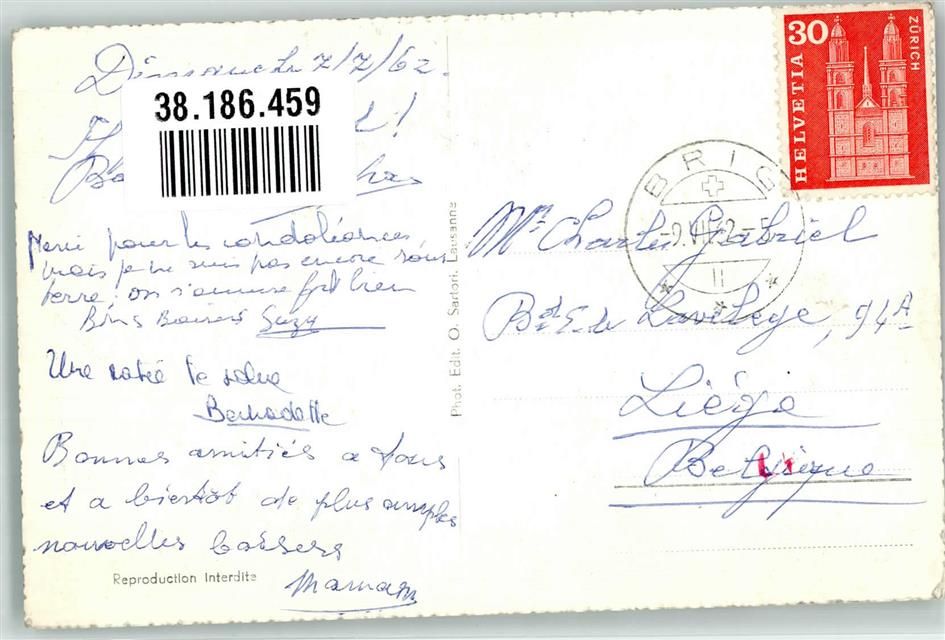 Dimanche 7/7/62.
38.186.459
Merci pour les condoléances,
mais je ne suis pas encore sous
terre; on s'amuse fort bien
Bons Baisers Suzy
Une ratée te salue
Bernadette
Bonnes amitiés a tous
et a bientôt de plus amples
nouvelles baisers
Maman
Reproduction Interdite
Phot. Edit. O. Sartori. Lausanne
30
HELVETIA
ZÜRICH
BRIG
-9.VII.62-5
Mr Charles Gabriel
Bd E. de Laveleye, 94A
Liége
Belgique